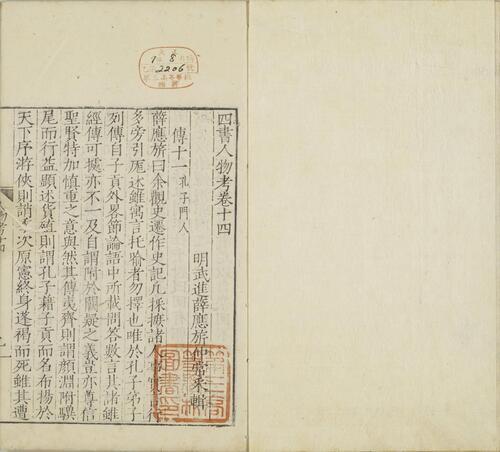 四書人物考卷十四
明武進薛應旂仲常采輯
傳十一孔子門人
薛應旂曰余觀史遷作史記凡採摭諸人
多旁引厖述雖寓言托喻者勿擇也唯於孔子弟子
列傳自子貢外畧節論語中所載問答數言其諸雖
經傳可據亦不一及自謂附於闕疑之義豈亦尊信
聖賢特加慎重之意與然其傳夷齊則謂顏淵附驥
尾而行益顯述貨殖則謂孔子藉子貢而名布揚於
天下序游俠則謂次原憲終身蓬褐而死雖其遭
2206